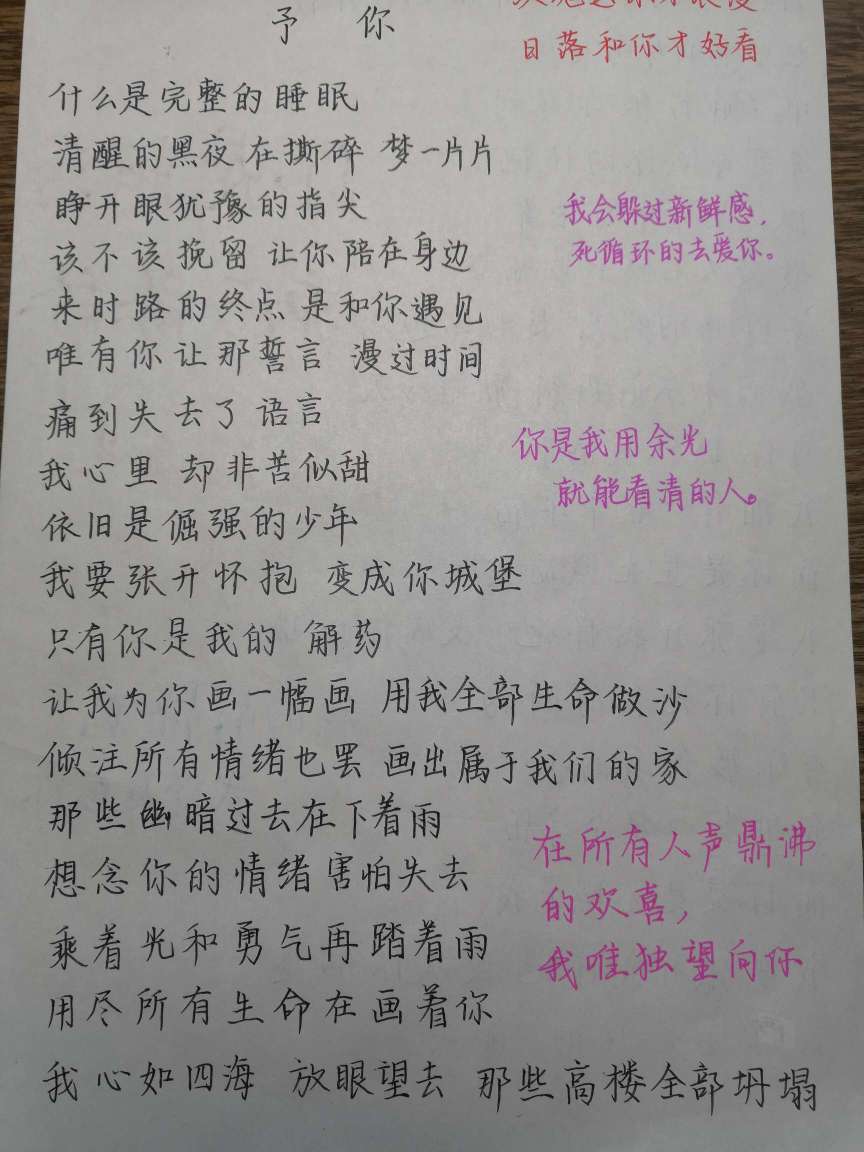 予 你
日落和你才好看
什么是完整的睡眠
清醒的黑夜 在撕碎 梦一片片
睁开眼犹豫的指尖
我会躲过新鲜感，
该不该挽留 让你陪在身边
死循环的去爱你。
来时路的终点 是和你遇见
唯有你让那誓言 漫过时间
痛到失去了语言
你是我用余光
我心里 却非苦似甜
就能看清的人。
依旧是倔强的少年
我要张开怀抱 变成你城堡
只有你是我的 解药
让我为你画一幅画 用我全部生命做沙
倾注所有情绪也罢 画出属于我们的家
那些幽暗过去在下着雨
在所有人声鼎沸
想念你的情绪害怕失去
的欢喜，
乘着光和勇气再踏着雨
我唯独望向你
用尽所有生命在画着你
我心如四海 放眼望去 那些高楼全部坍塌